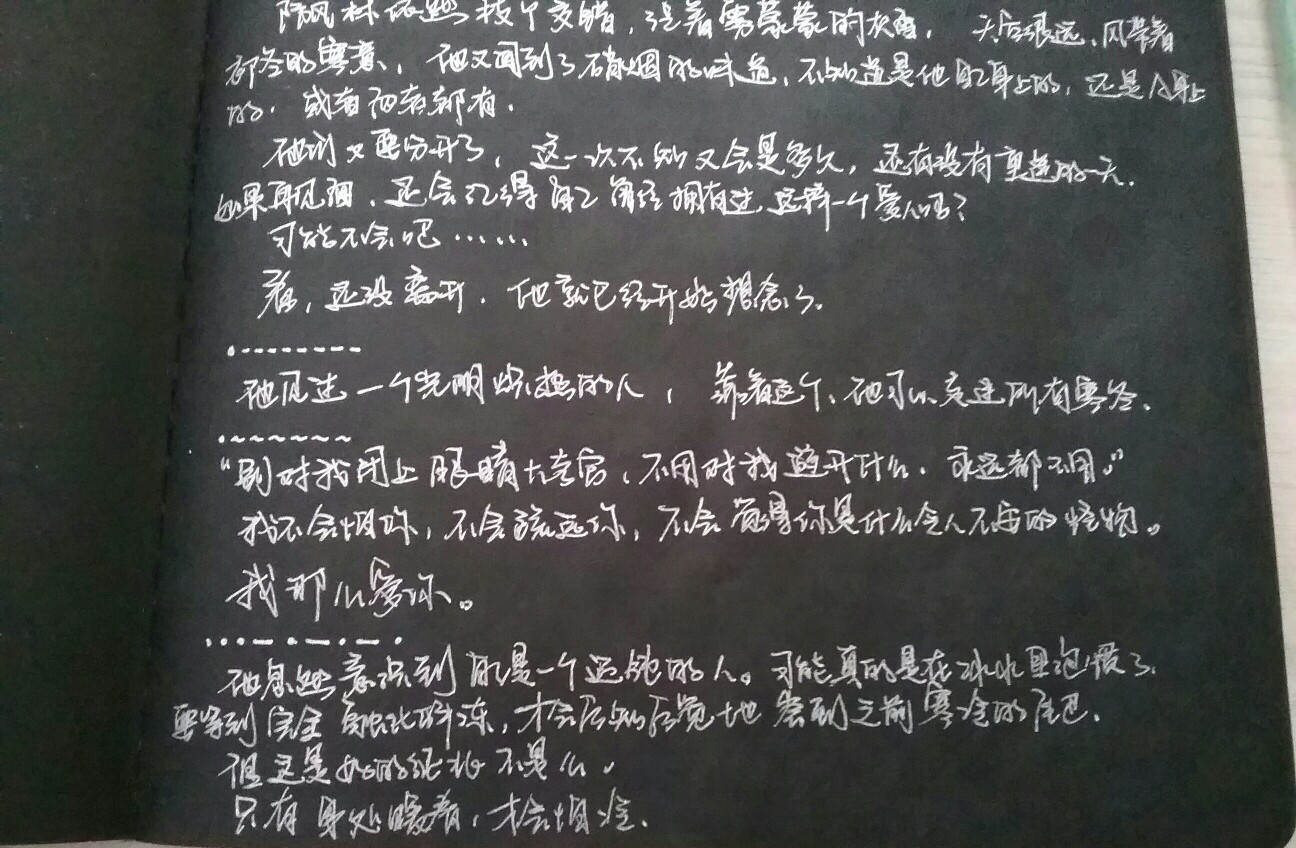 防风林依然枝丫交错，泛着雾蒙蒙的灰白，天启很远，风带着
初冬的寒意，他又闻到了硝烟的味道，不知道是他自己身上的，还是A身上
的，或者两者都有。
他们又要分开了，这一次不知又会是多久，还有没有重逢的一天，
如果再见面，还会记得自己曾经拥有过这样一个爱人吗？
可能不会吧……
看，还没离开，他就已经开始想念了。
他见过一个光明炽热的人，靠着这个，他可以走过所有寒冬。
“别对我闭上眼睛大考官，不用对我避开什么，永远都不用。”
我不会怕你，不会疏远你，不会觉得你是什么令人不安的怪物。
我那么爱你。
他忽然意识到自己是一个迟钝的人。可能真的是在冰水里泡惯了，
要等到完全融化解冻，才会后知后觉地察到之前寒冷的尾巴，
但这是好的征兆不是么。
只有身处暖春，才会怕冷。